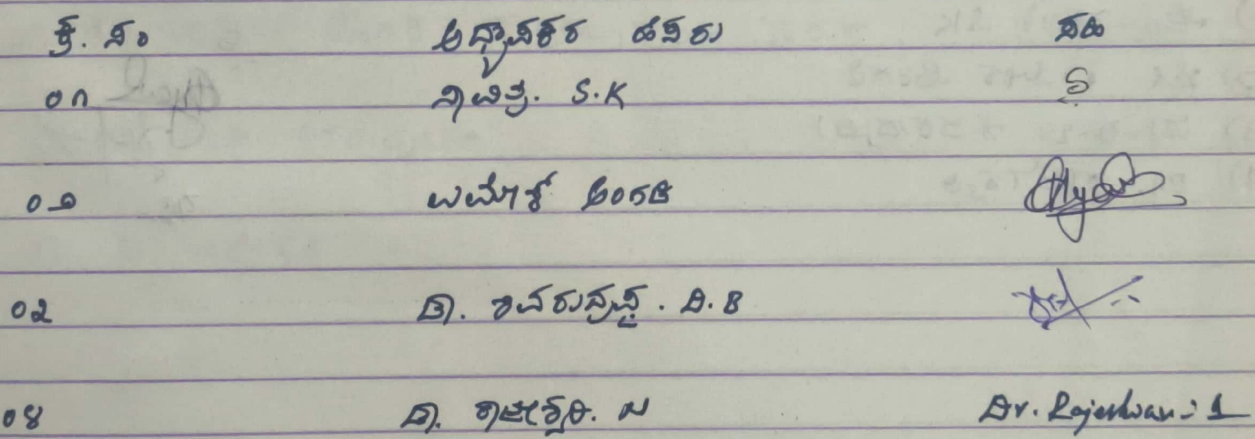 ಕ್ರ. ಸಂ ಅಧ್ಯಾಪಕರ ಹೆಸರು ಸಹಿ
೦೧ S.K
೦೨ ಉಮೇಶ್ ಅಂಗಡಿ
೦೩ ಡಾ. ಶಿವರುದ್ರಪ್ಪ. ಡಿ.
೦೪ ಡಾ. ರಾಜೇಶ್ವರಿ. Dr. Rajeshwari